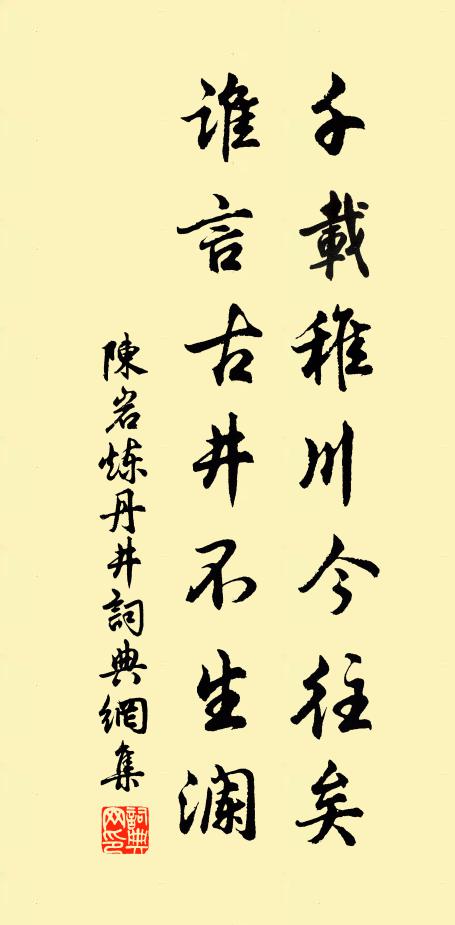 千載稚川今往矣
誰言古井不生澜
陳岩炼丹井詞典網集
詞典网印